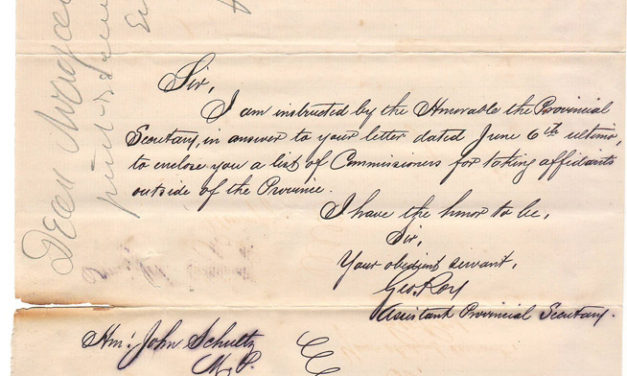 Sir,
I am instructed by the Honorable the Provincial
Secretary, in answer to your letter dated June 6th ultimo,
to enclose you a list of Commissioners for taking affidavits
outside of the Province.
I have the honor to be,
Sir,
Your obedient servant,
Geo. Roy
Assistant Provincial Secretary.
Hon: John Schultz
M.P.
Dear